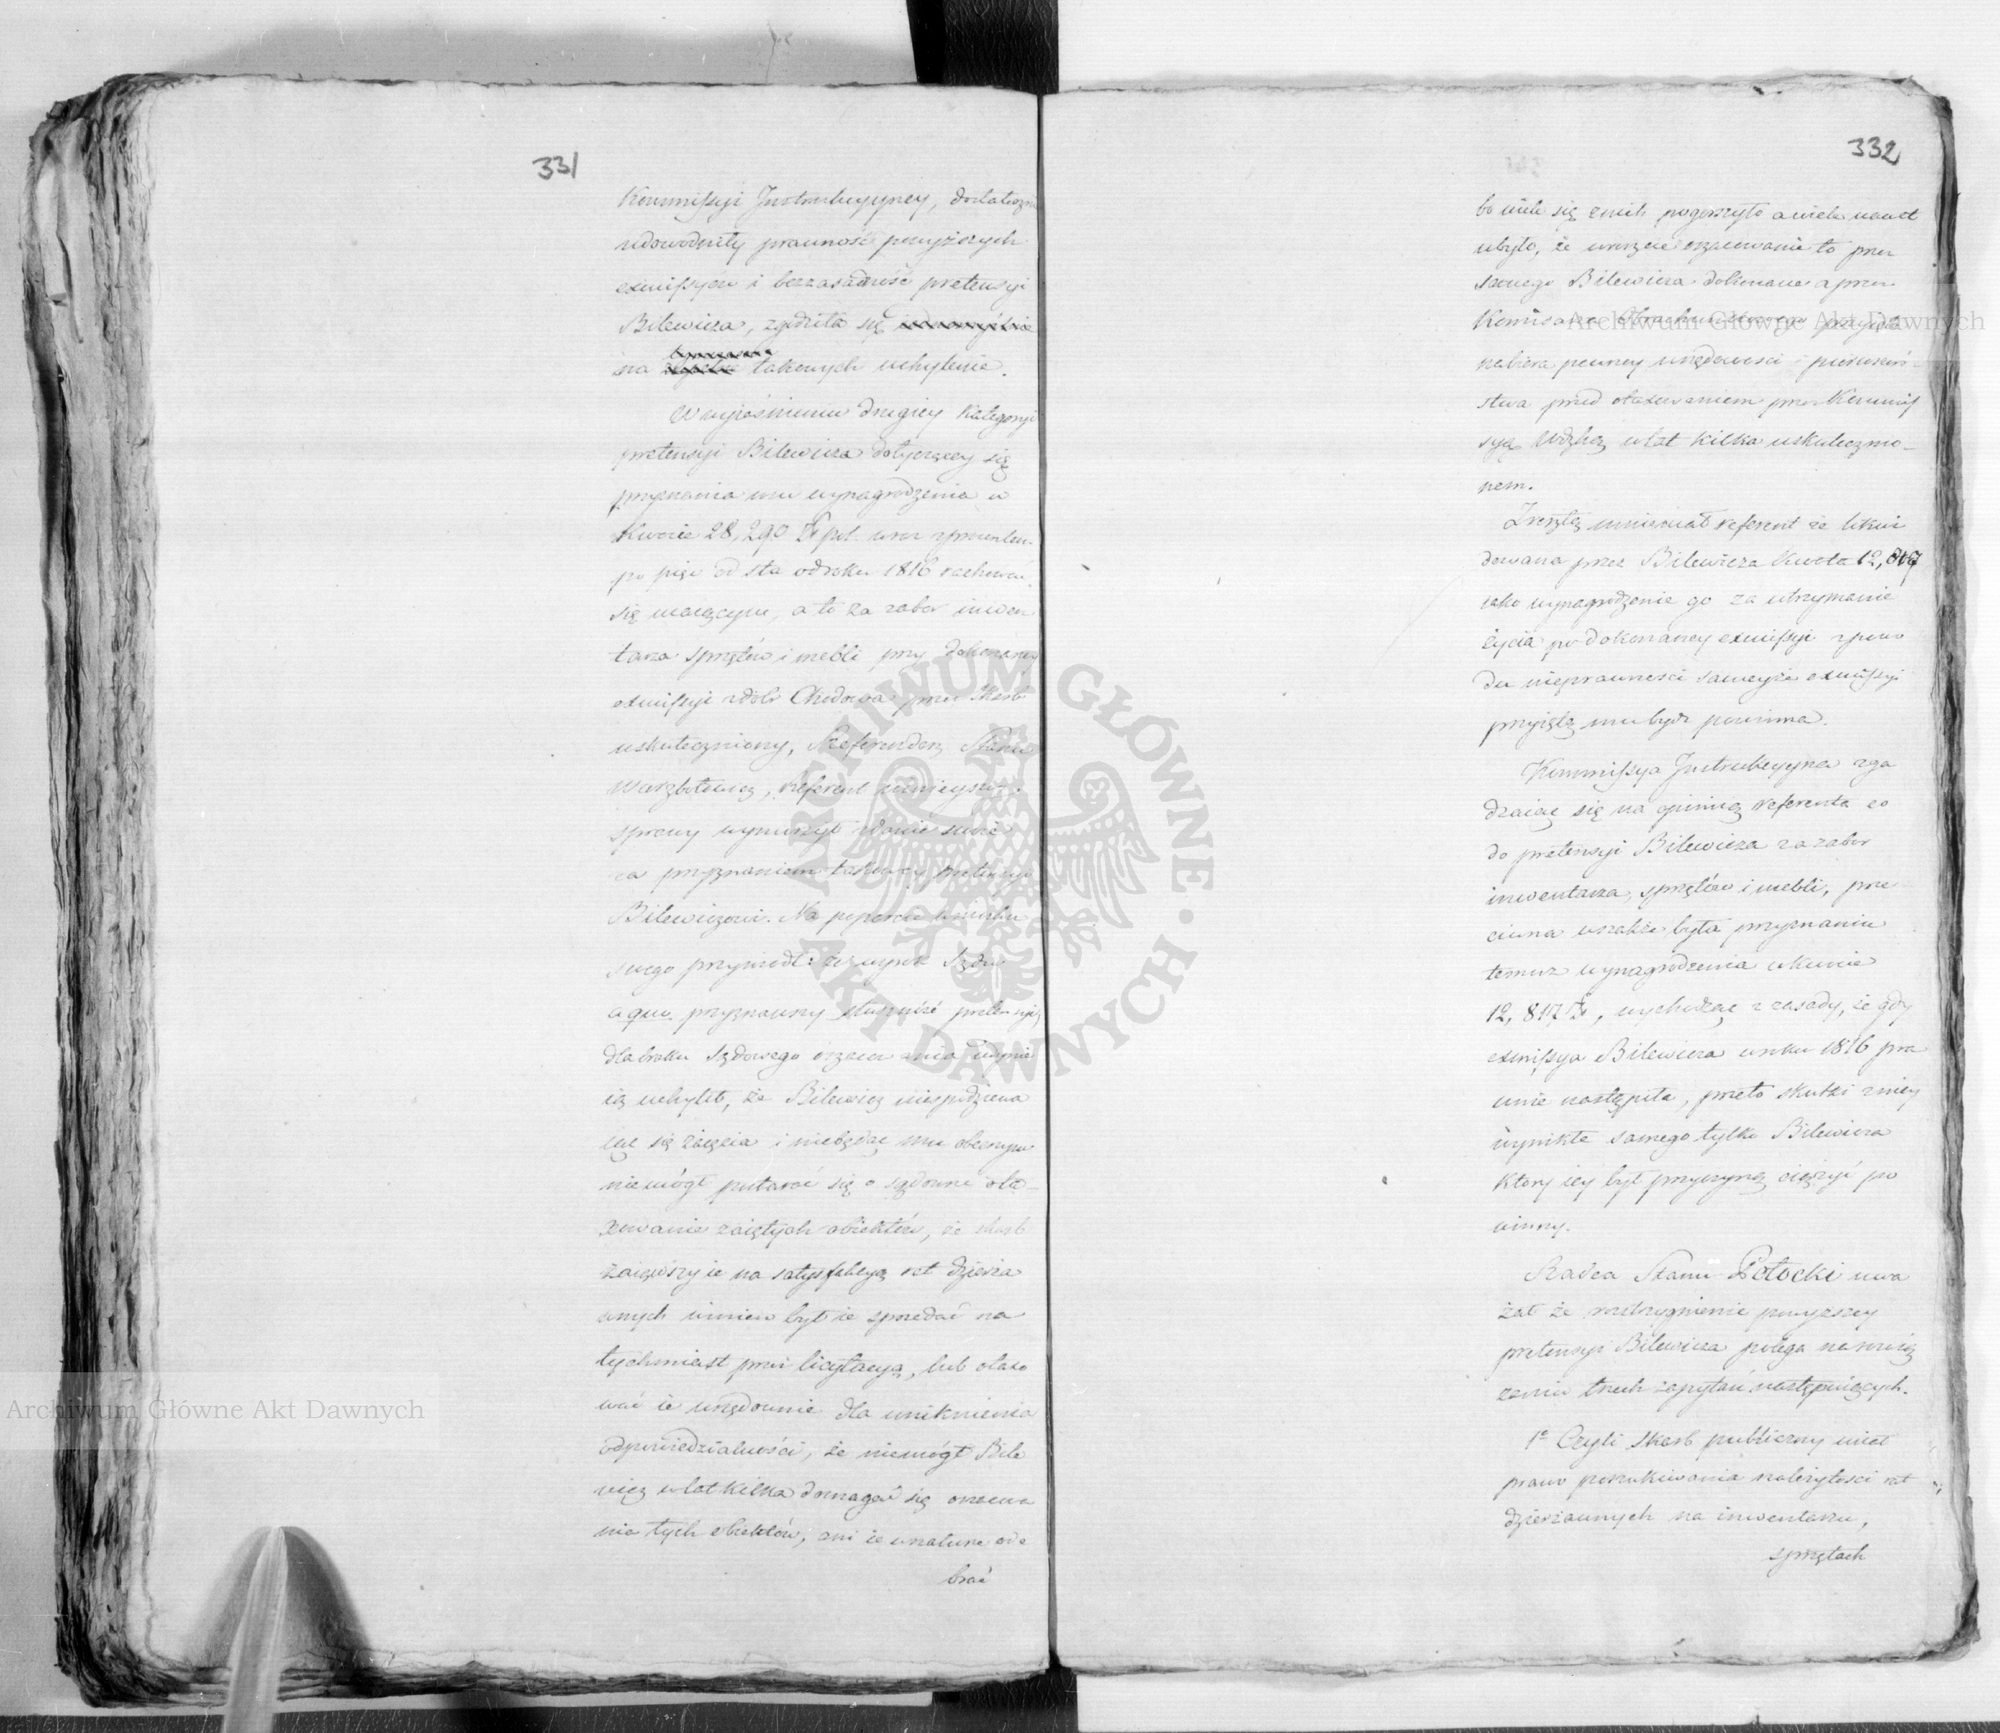 331
Kommissyi Instrukcyyney, dostatecznie
udowodniły prawność powyższych
exmissyów i bezzasadność pretensyi
Bilewicza, zgodziła się jednomyślnie
na takowych uchylenie.
W wyjaśnieniu drugiey Kategoryi
pretensyi Bilewicza dotyczącey się
przyznania mu wynagrodzenia w
Kwocie 28,290 Zł pol. wraz z procentem
po pięć od sta od roku 1816 rachować
się maiącym, a to za zabor inwen
tarza sprzętów i mebli przy dokonaney
exmissyi z dóbr Chodowa przez Skarb
uskuteczniony, Referendarz Stanu
Referent ninieyszey
sprawy wynurzył zdanie swoie
za przyznaniem takowey pretensyi
Bilewiczowi. Na poparcie wniosku
swego przywiódł: że wyrok Sądu
a quo przyznawszy słuszność pretensyi
dla braku Sądowego oszacowania
ią uchylił, że Bilewicz niespodziewa
iąc się zaięcia i niebędąc mu obecnym
niemógł postarać się o sądowne ota-
xowanie zaiętych obiektów, że skarb
zaiąwszy ie na satysfakcyą rat dzierża
wnych winien był ie sprzedać na
tychmiast przez licytacyą, lub otaxo
wać ie urzędownie dla uniknienia
odpowiedzialności, że niemógł Bile
wicz w lat kilka domagać się oszacowa
nia tych obiektów, ani ie w naturze ode
brać
332
bo wiele się z nich pogorszyło a wiele nawet
ubyło, że wreszcie oszacowanie to przez
samego Bilewicza dokonane a przez
Komisarza Obrachunkowego przyięte
nabiera pewney urzędowości i pierwszeń-
stwa przed otaxowaniem przez Kommis
syą w lat kilka uskuteczno-
nem.
Zresztą mniemał referent że likwi
dowana przez Bilewicza Kwota 12,817
iako wynagrodzenie go za utrzymanie
życia po dokonaney exmissyi z powo
du nieprawności sameyże exmissyi
przyiętą mu bydź powinna.
Kommissya Instrukcyyna zga
dzaiąc się na opinią referenta co
do pretensyi Bilewicza za zabor
inwentarza, sprzętów i mebli, prze
ciwna wszakże była przyznaniu
temuż wynagrodzenia w kwocie
12,817 Zł, wychodząc z zasady, że gdy
exmissya Bilewicza w roku 1816 pra
wnie nastąpiła, przeto skutki z niey
wynikłe samego tylko Bilewicza
który iey był przyczyną ciężyć po
winny.
Radca Stanu Potocki uwa
żał że rozstrzygnienie powyższey
pretensyi Bilewicza polega na rozwią
zaniu trzech zapytań następuiących.
1e Czyli Skarb publiczny miał
prawo poszukiwania należytości rat
dzierżawnych na inwentarzu,
sprzętach
Archiwum Główne Akt Dawnych
Archiwum Główne Akt Dawnych
ARCHIWUM GŁÓWNE AKT DAWNYCH